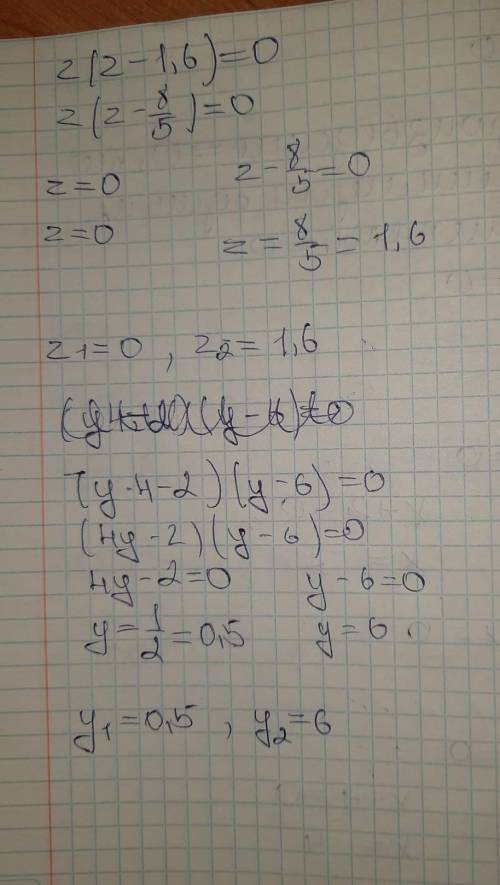 z(z-1,6)=0
z(z-8/5)=0
z=0 z-8/5=0
z=0 z=8/5=1,6
z1=0, z2=1,6
(y·4-2)(y-6)=0
(4y-2)(y-6)=0
4y-2=0 y-6=0
y=1/2=0,5 y=6.
y1=0,5, y2=6